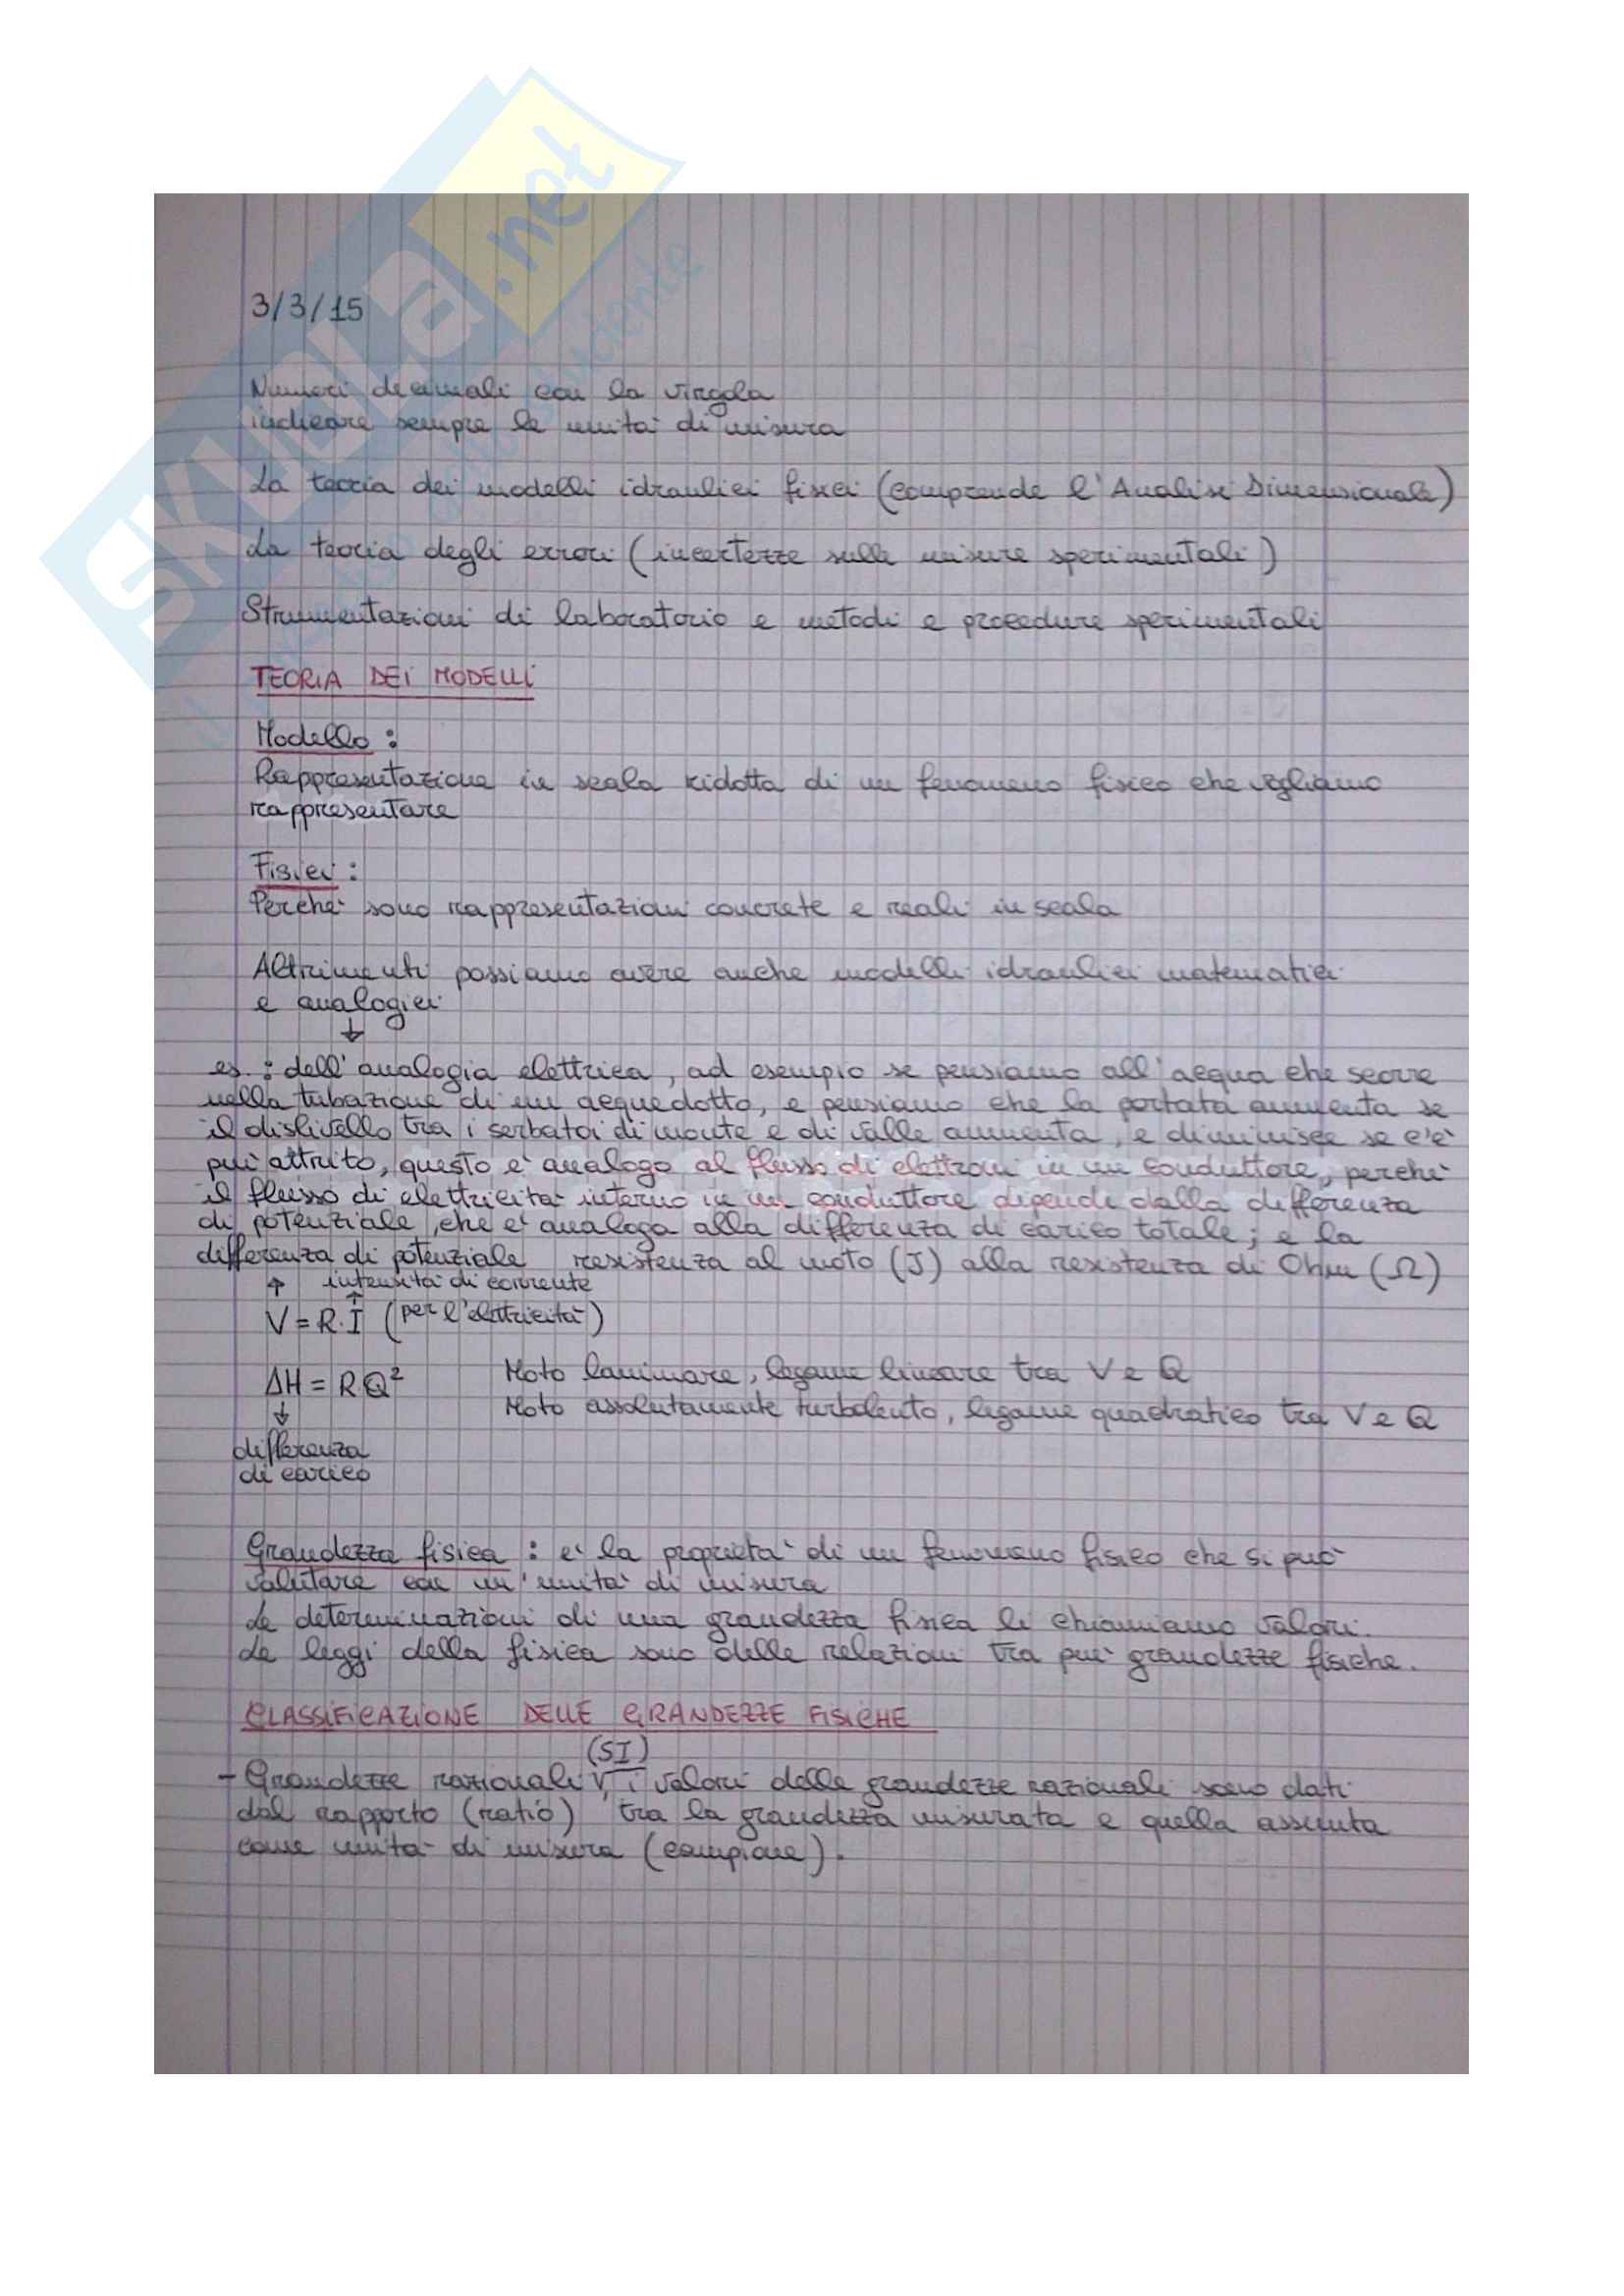 SKUOLA.net
3/3/15
Numeri decimali con la virgola
indicare sempre le unità di misura
La teoria dei modelli idraulici fisici (comprende l'Analisi Dimensionale)
La teoria degli errori (incertezze sulle misure sperimentali)
Strumentazioni di laboratorio e metodi e procedure sperimentali
TEORIA DEI MODELLI
Modello:
Rappresentazione in scala ridotta di un fenomeno fisico che vogliamo
rappresentare
Fisici:
Perché sono rappresentazioni concrete e reali in scala
Altrimenti possiamo avere anche modelli idraulici matematici
e analogici
↓
es.: dell'analogia elettrica, ad esempio se pensiamo all'acqua che scorre
nella tubazione di un acquedotto, e pensiamo che la portata aumenta se
il dislivello tra i serbatoi di monte e di valle aumenta, e diminuisce se c'è
più attrito, questo è analogo al flusso di elettroni in un conduttore, perché
il flusso di elettricità interno in un conduttore dipende dalla differenza
di potenziale, che è analoga alla differenza di carico totale; e la
differenza di potenziale resistenza al moto (J) alla resistenza di Ohm (Ω)
↑ intensità di corrente
↑
V = R·I (per l'elettricità)
ΔH = R·Q² Moto laminare, legame lineare tra V e Q
↓ Moto assolutamente turbolento, legame quadratico tra V e Q
differenza
di carico
Grandezza fisica: è la proprietà di un fenomeno fisico che si può
valutare con un'unità di misura
Le determinazioni di una grandezza fisica li chiamiamo valori.
Le leggi della fisica sono delle relazioni tra più grandezze fisiche.
CLASSIFICAZIONE DELLE GRANDEZZE FISICHE
(SI)
- Grandezze razionali, i valori delle grandezze razionali sono dati
dal rapporto (ratio) tra la grandezza misurata e quella assunta
come unità di misura (campione).